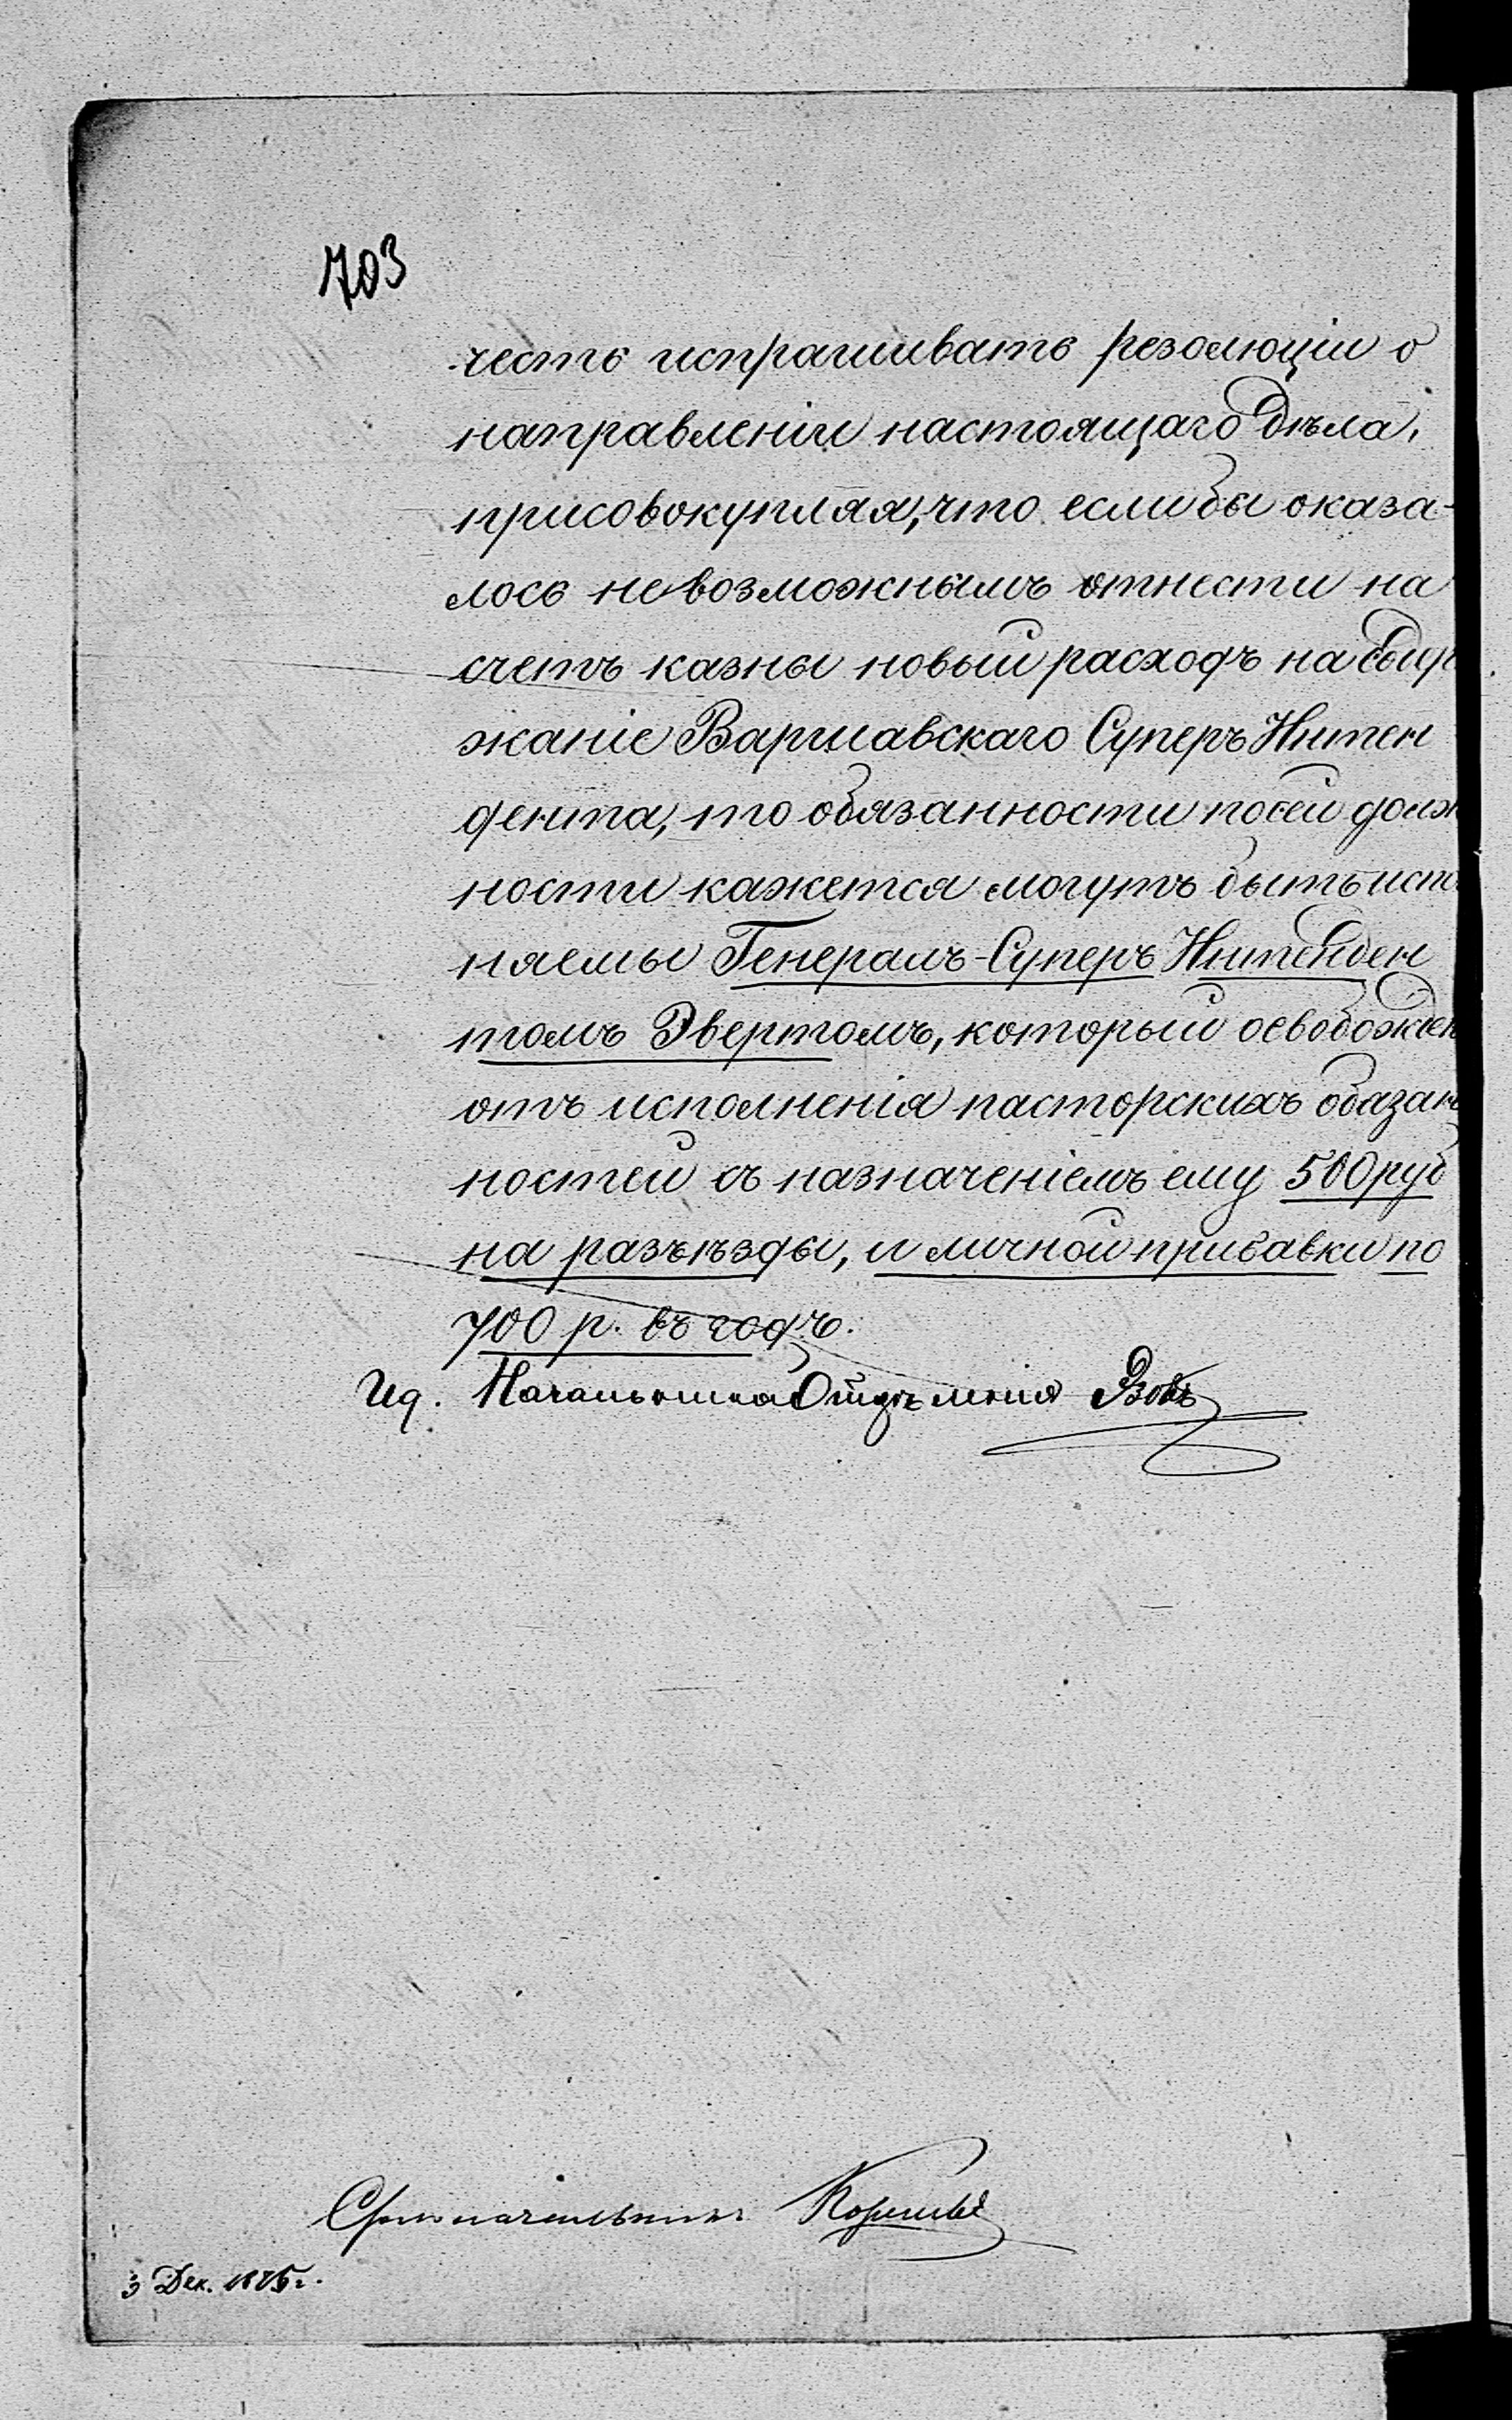 703
честь испрашивать резолюціи о
направленіи настоящаго дѣла,
присовокупляя, что если бы оказа-
лось невозможнымъ отнести на
счетъ казны новый расходъ на содер
жаніе Варшавскаго Суперъ Интен
дента, то обязанности по сей долж
ности кажется могутъ быть испо
няемы Генералъ-Суперъ Интенден
томъ Эвертомъ, который освобожден
отъ исполненія пасторскихъ обязан
ностей съ назначеніемъ ему 500 руб
на разъѣзды, и личной прибавки по
700 р. въ годъ.
Ид. Начальника Отдѣленія
Столоначальникъ
3 Дек. 1875 г.